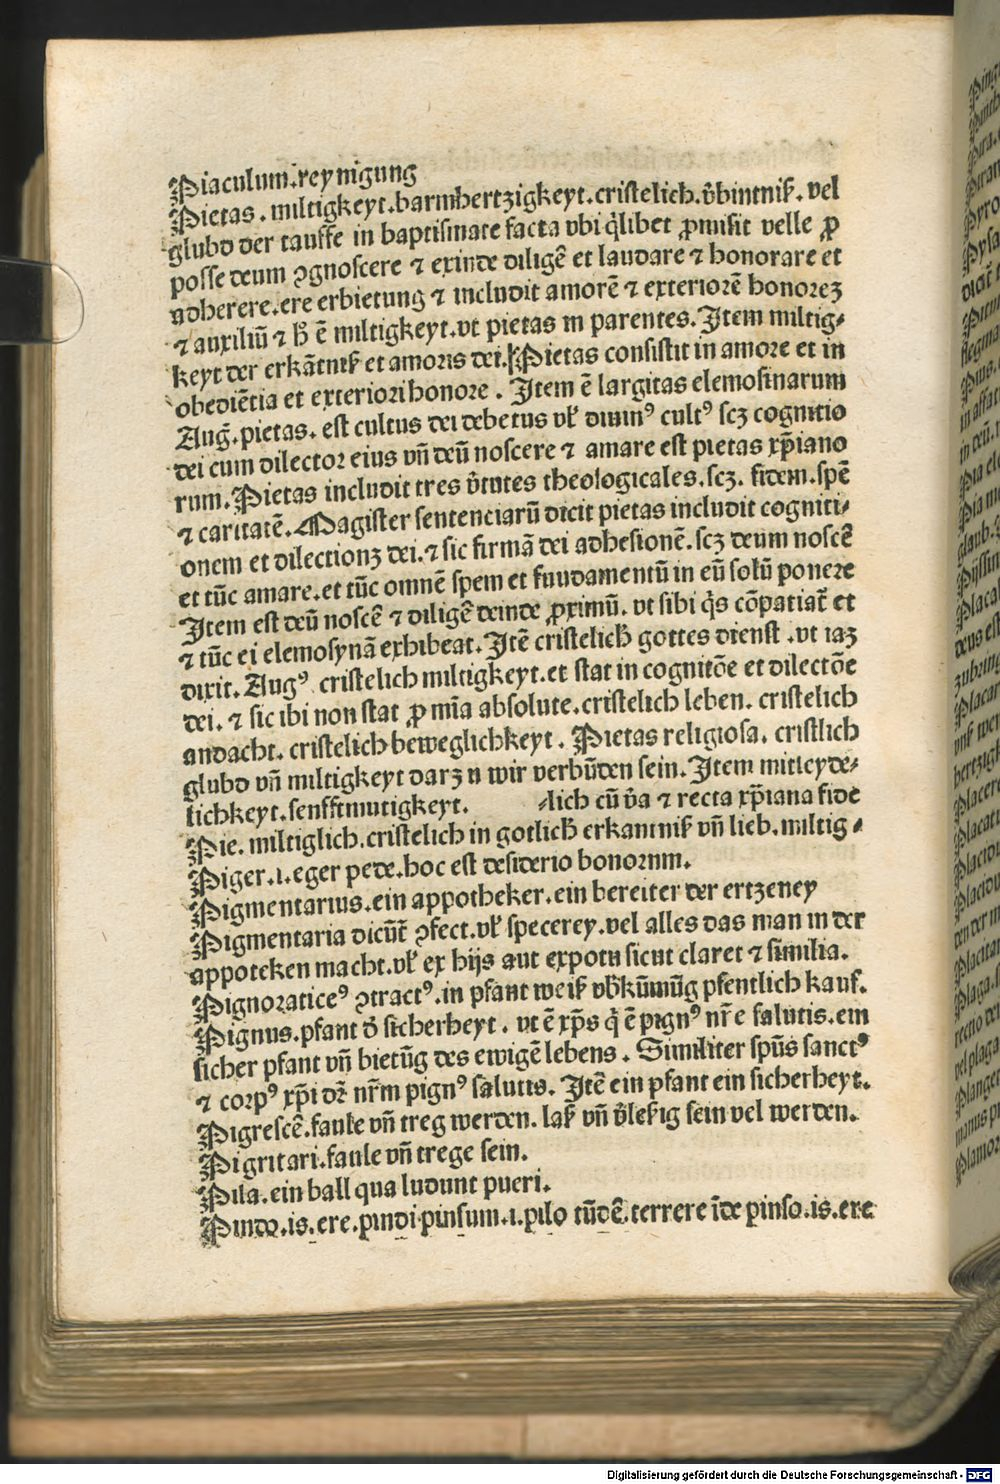 Piaculum.reynigung
Pietas. miltigkeyt.barmhertzigkeyt.cristelich.v̄bintniß. vel
glubd der tauffe in baptismate facta vbi q̄libet ꝓmisit velle ꝓ
posse deum ꝯgnoscere ⁊ exinde diligē et laudare ⁊ honorare et
adherere.ere erbietung ⁊ includit amorē ⁊ exteriorē honorez
⁊ auxiliū ⁊ ħ ē miltigkeyt.vt pietas in parentes. Item miltig⸗
keyt der erkātniß et amoris dei. Pietas consistit in amore et in
obediētia et exteriori honore. Item ē largitas elemosinarum
Auḡ. pietas. est cultus dei debetus vel̕ diuin⁹ cult⁹ scz cognitio
dei cum dilector eius vn̄ deū noscere ⁊ amare est pietas xp̄iano
rum. Pietas includit tres v̄tutes theologicales. scz. fidem. spē
⁊ caritatē. Magister sentenciarū dicit pietas includit cogniti⸗
onem et dilectionz dei.⁊ sic firmā dei adhesionē.scz deum noscē
et tūc amare.et tūc omnē spem et fundamentū in eū solū ponere
Item est deū noscē ⁊ diligē deinde ꝓximū. vt sibi q̄s cōpatiat̄ et
⁊ tūc ei elemosynā exhibeat. Itē cristelich gottes dienst. vt iaz
dixit. Aug⁹ cristelich miltigkeyt.et stat in cognitōe et dilectōe
dei. ⁊ sic ibi non stat ꝓ mīa absolute.cristelich leben. cristelich
andacht. cristelich beweglichkeyt. Pietas religiosa. cristlich
glubd vn̄ miltigkeyt darzu wir verbūden sein. Item mitleyde⸗
lichkeyt.senfftmutigkeyt. ⸗lich cū v̄a ⁊ recta xp̄iana fide
Pie. miltiglich.cristelich in gotlich erkantniß vn̄ lieb. miltig⸗
Piger.i.eger pede.hoc est desiderio bonorum.
Pigmentarius.ein appotheker.ein bereiter der ertzeney
Pigmentaria dicūt̄ ꝯfect.vel̕ specerey.vel alles das man in der
appoteken macht.vel̕ ex hijs aut expotu sicut claret ⁊ similia.
Pignoratice⁹ ꝯtract⁹.in pfant weiß vk̄ūmūg pfentlich kauf.
Pignus.pfant d̄ sicherheyt. vt ē xp̄s q̄ ē pign⁹ nr̄e salutis.ein
sicher pfant vn̄ bietūg des ewigē lebens. Similiter spūs sanct⁹
⁊ corp⁹ xp̄i dr̄ nr̄m pign⁹ salutis. Itē ein pfant ein sicherheyt.
Pigrescē.faule vn̄ treg werden. laß vn̄ v̄leßig sein vel werden.
Pigritari.faule vn̄ trege sein.
Pila.ein ball qua ludunt pueri.
Pindo.is.ere.pindi pinsum.i.pilo tūdē.terrere īde pinso.is.ere
Digitalisierung gefördert durch die Deutsche Forschungsgemeinschaft - DFG